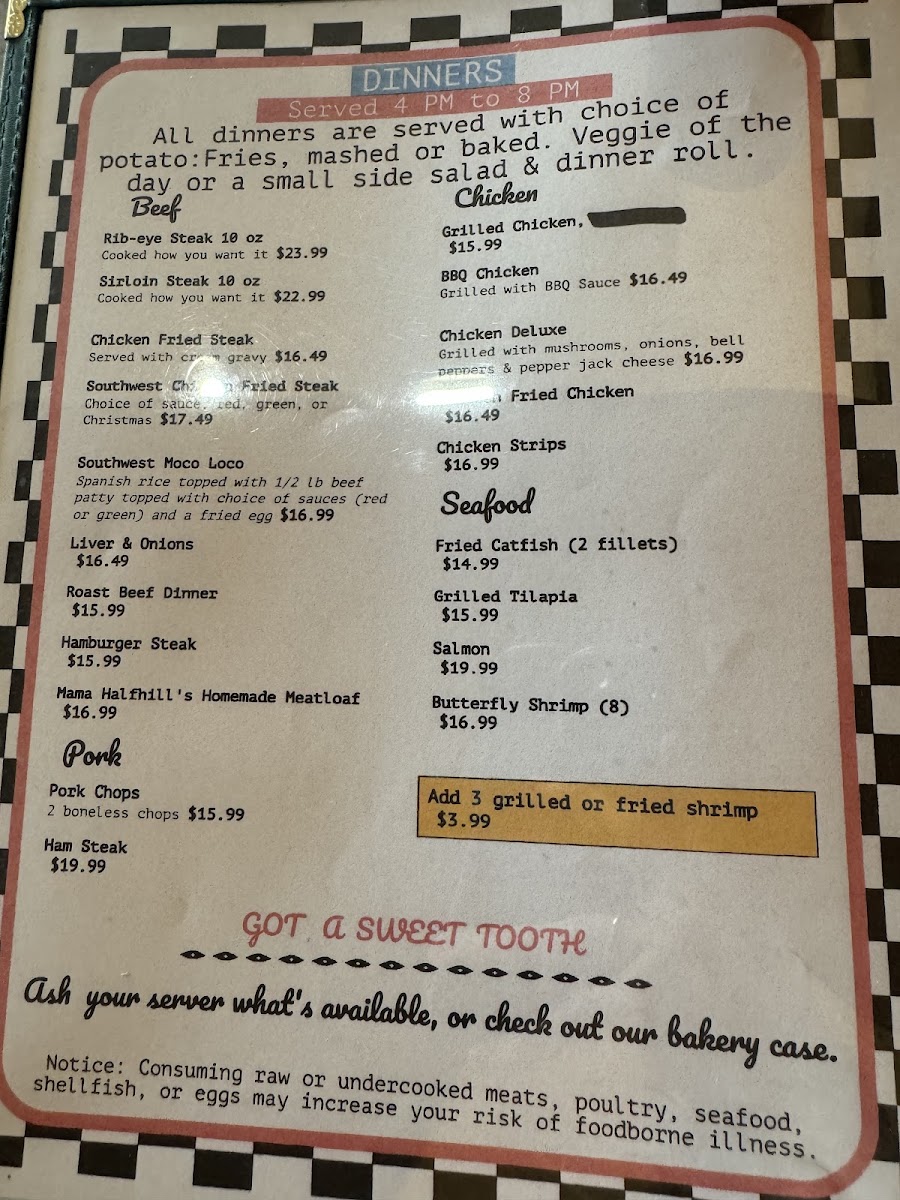 DINNERS
Served 4 PM to 8 PM
All dinners are served with choice of
potato:Fries, mashed or baked. Veggie of the
day or a small side salad & dinner roll.
Beef
Rib-eye Steak 10 oz
Cooked how you want it $23.99
Sirloin Steak 10 oz
Cooked how you want it $22.99
Chicken Fried Steak
Served with cream gravy $16.49
Southwest Chicken Fried Steak
Choice of sauce, red, green, or
Christmas $17.49
Southwest Moco Loco
Spanish rice topped with 1/2 lb beef
patty topped with choice of sauces (red
or green) and a fried egg $16.99
Liver & Onions
$16.49
Roast Beef Dinner
$15.99
Hamburger Steak
$15.99
Mama Halfhill's Homemade Meatloaf
$16.99
Pork
Pork Chops
2 boneless chops $15.99
Ham Steak
$19.99
Chicken
Grilled Chicken,
$15.99
BBQ Chicken
Grilled with BBQ Sauce $16.49
Chicken Deluxe
Grilled with mushrooms, onions, bell
peppers & pepper jack cheese $16.99
Fried Chicken
$16.49
Chicken Strips
$16.99
Seafood
Fried Catfish (2 fillets)
$14.99
Grilled Tilapia
$15.99
Salmon
$19.99
Butterfly Shrimp (8)
$16.99
Add 3 grilled or fried shrimp
$3.99
GOT A SWEET TOOTH
Ask your server what's available, or check out our bakery case.
Notice: Consuming raw or undercooked meats, poultry, seafood,
shellfish, or eggs may increase your risk of foodborne illness.